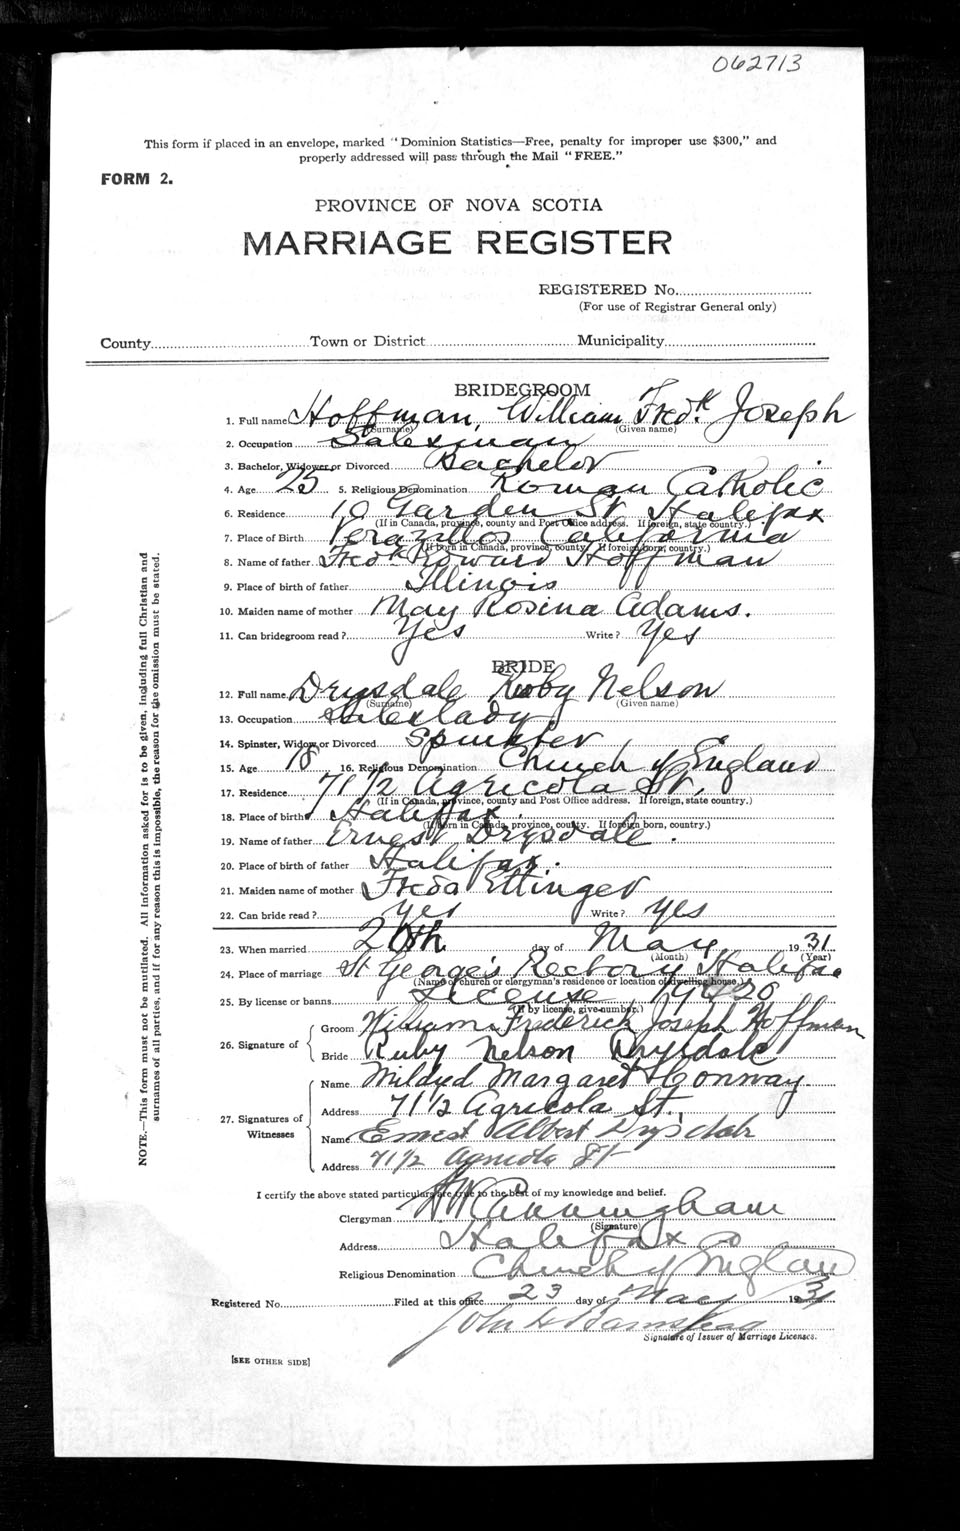 062713
This form if placed in an envelope, marked "Dominion Statistics—Free, penalty for improper use $300," and
properly addressed will pass through the Mail "FREE."
FORM 2.
PROVINCE OF NOVA SCOTIA
MARRIAGE REGISTER
REGISTERED No.
(For use of Registrar General only)
County Town or District Municipality
BRIDEGROOM
1. Full name Hoffman, William Fredk Joseph
(Surname) (Given name)
2. Occupation Salesman
3. Bachelor, Widower or Divorced Bachelor
4. Age 25 5. Religious Denomination Roman Catholic
6. Residence 10 Garden St. Halifax
(If in Canada, province, county and Post Office address. If foreign, state country.)
7. Place of Birth California
(If born in Canada, province, county. If foreign born, country.)
8. Name of father Fredk Howard Hoffman
9. Place of birth of father Illinois
10. Maiden name of mother May Rosina Adams.
11. Can bridegroom read? Yes Write? Yes
BRIDE
12. Full name Drysdale Ruby Nelson
(Surname) (Given name)
13. Occupation Saleslady
14. Spinster, Widow or Divorced Spinster
15. Age 18 16. Religious Denomination Church of England
17. Residence 71 1/2 Agricola St.
(If in Canada, province, county and Post Office address. If foreign, state country.)
18. Place of birth Halifax
(If born in Canada, province, county. If foreign born, country.)
19. Name of father Ernest Drysdale.
20. Place of birth of father Halifax.
21. Maiden name of mother Freda Ettinger
22. Can bride read? yes Write? yes
23. When married 20th day of May 1931
(Month) (Year)
24. Place of marriage St George's Rectory Halifax
(Name of church or clergyman's residence or location of dwelling house.)
25. By license or banns License
(If by license, give number.)
26. Signature of
Groom William Frederick Joseph Hoffman
Bride Ruby Nelson Drysdale
27. Signatures of Witnesses
Name Mildred Margaret Conway
Address 71 1/2 Agricola St.
Name Ernest Albert Drysdale
Address 71 1/2 Agricola St
I certify the above stated particulars are true to the best of my knowledge and belief.
Clergyman Cunningham
(Signature)
Address Halifax
Religious Denomination Church of England
Registered No. Filed at this office 23 day of May 1931
John H Barnstead
Signature of Issuer of Marriage Licenses.
[SEE OTHER SIDE]
NOTE.—This form must not be mutilated. All Information asked for is to be given, including full Christian and
surnames of all parties, and if for any reason this is impossible, the reason for the omission must be stated.